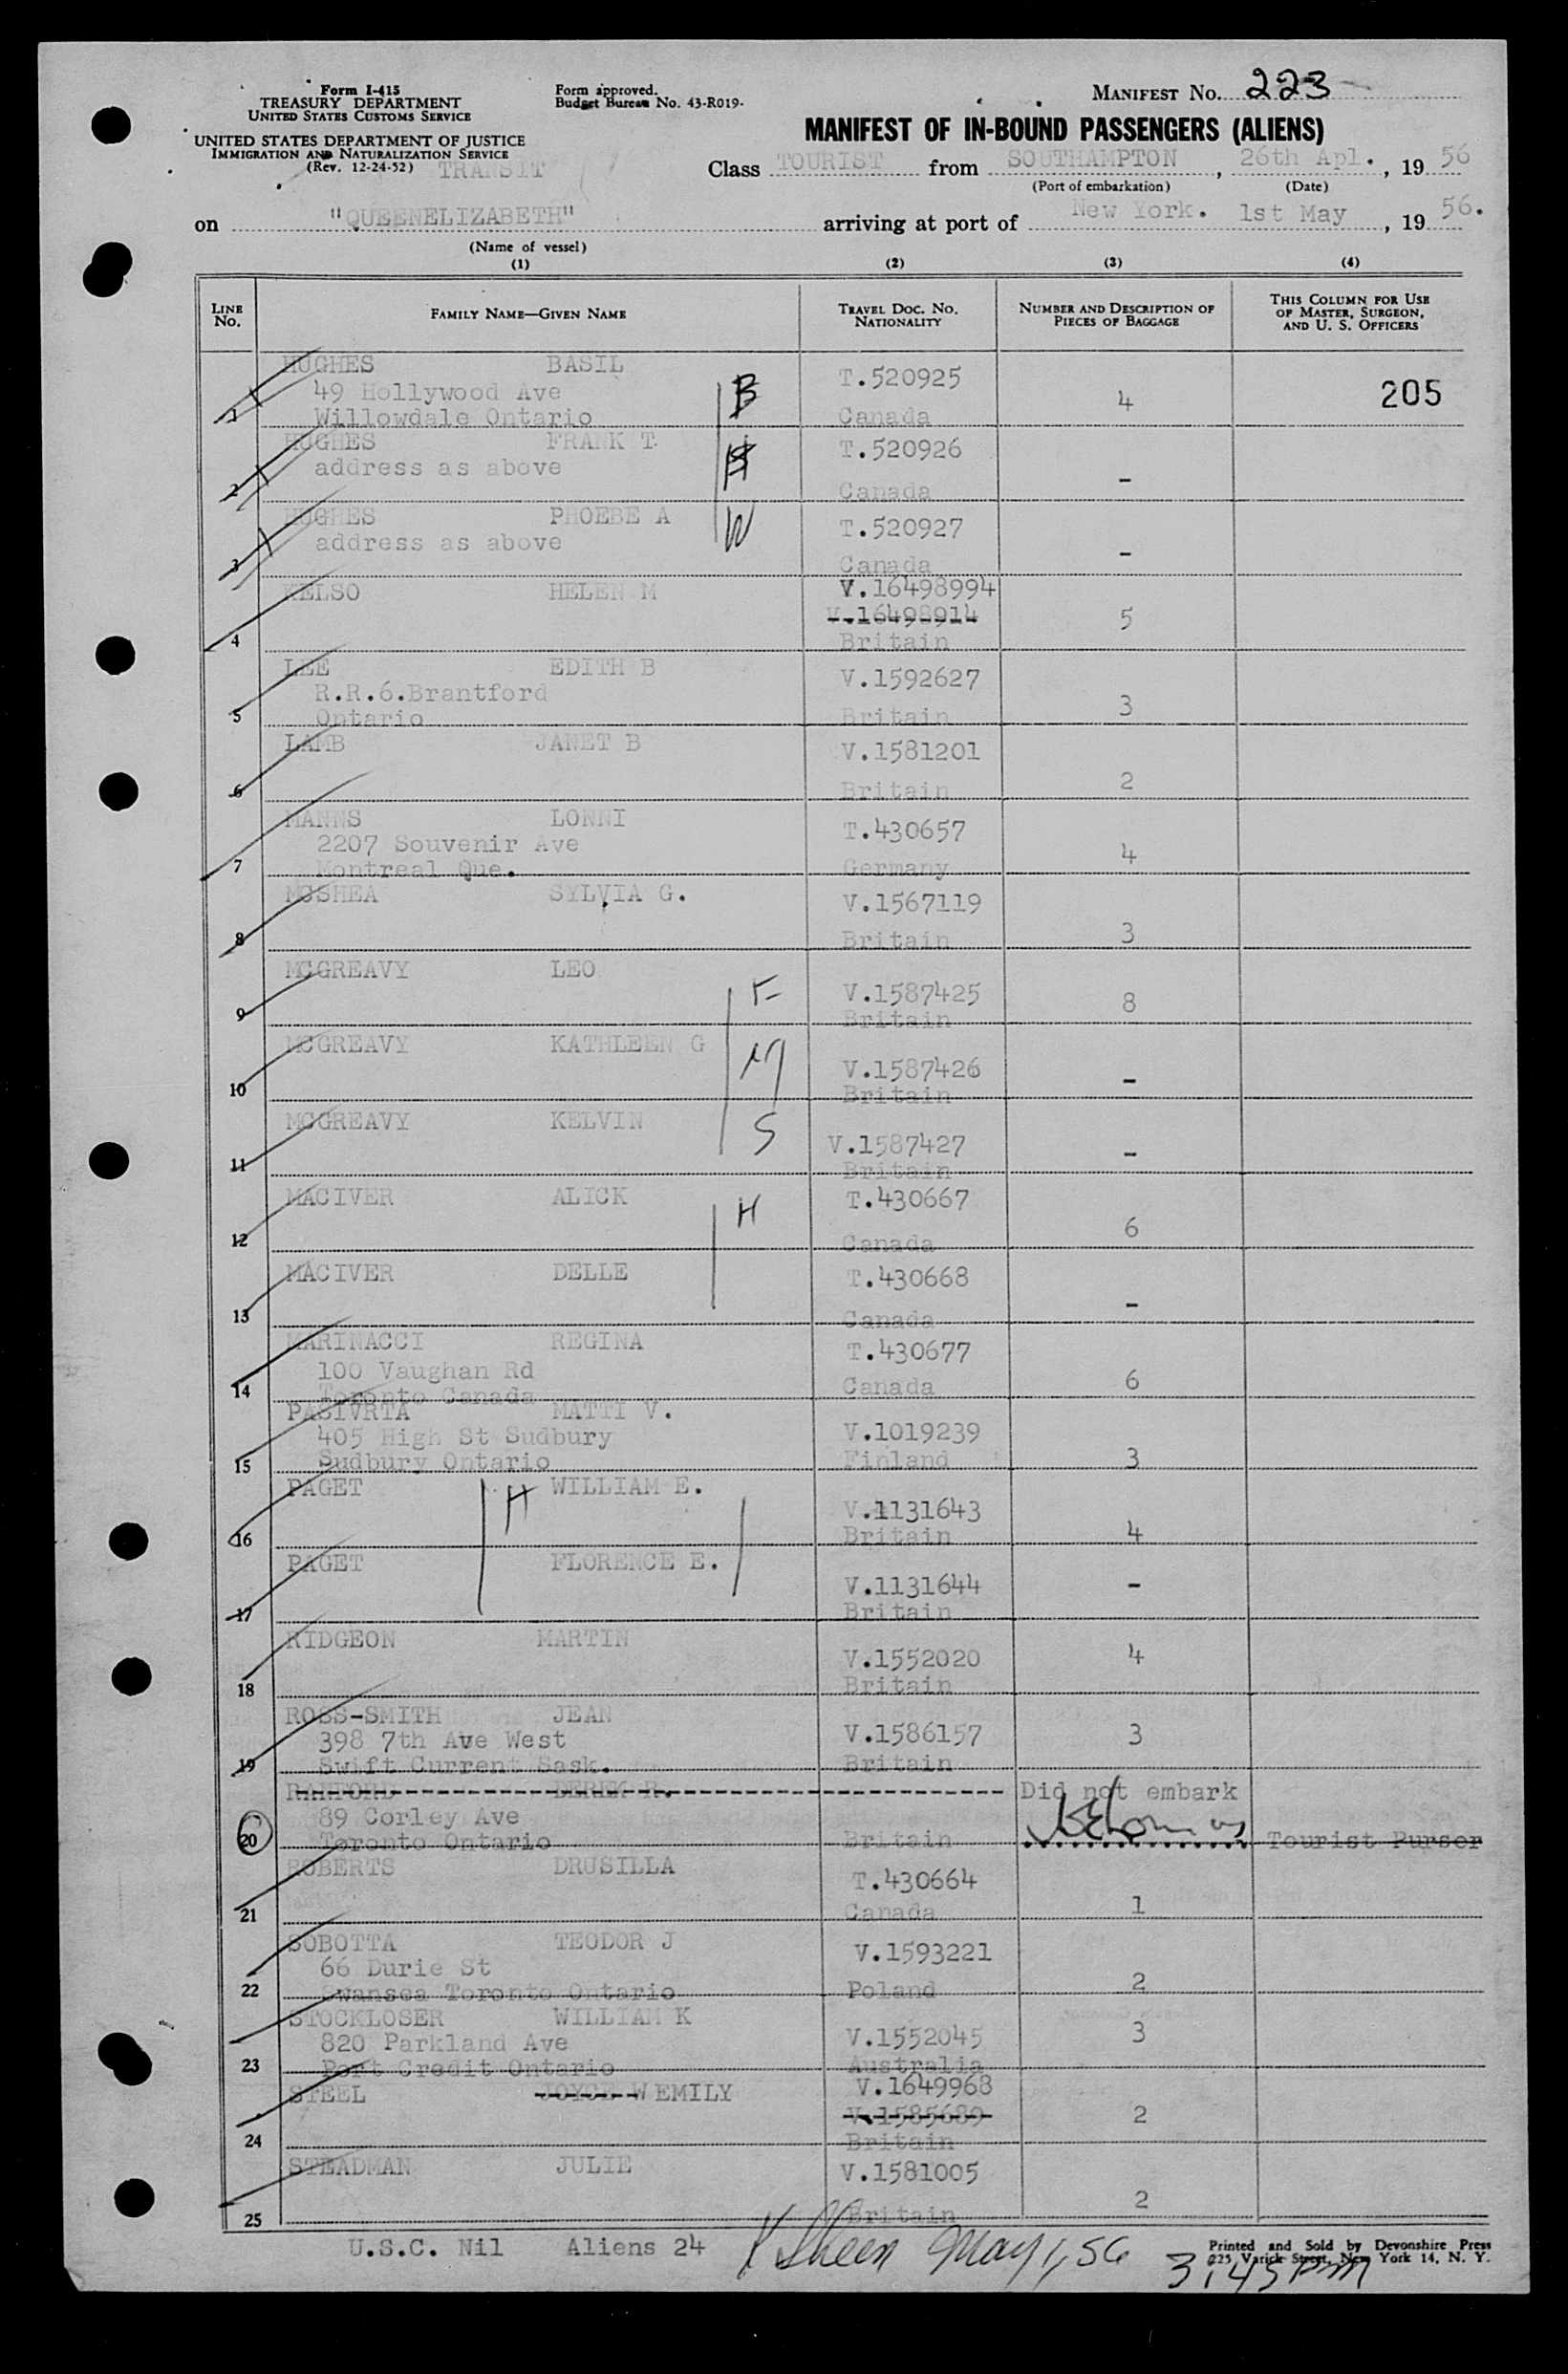 Form I-415
TREASURY DEPARTMENT
UNITED STATES CUSTOMS SERVICE
UNITED STATES DEPARTMENT OF JUSTICE
IMMIGRATION AND NATURALIZATION SERVICE
(Rev. 12-24-52) TRANSIT
Form approved.
Budget Bureau No. 43-R019-
MANIFEST No. 223
MANIFEST OF IN-BOUND PASSENGERS (ALIENS)
Class TOURIST from SOUTHAMPTON, 26th Apl., 1956
(Port of embarkation) (Date)
on "QUEENELIZABETH" arriving at port of New York. 1st May, 1956.
(Name of vessel)
(1) (2) (3) (4)
LINE No. FAMILY NAME—GIVEN NAME TRAVEL DOC. No. NATIONALITY NUMBER AND DESCRIPTION OF PIECES OF BAGGAGE THIS COLUMN FOR USE OF MASTER, SURGEON, AND U. S. OFFICERS
HUGHES BASIL B T.520925
49 Hollywood Ave 4 205
1 Willowdale Ontario Canada
HUGHES FRANK T T.520926
address as above -
2 Canada
HUGHES PHOEBE A W T.520927
address as above -
3 Canada
KELSO HELEN M V.16498994
V.16498914 5
4 Britain
LEE EDITH B V.1592627
R.R.6.Brantford 3
5 Ontario Britain
LAMB JANET B V.1581201
6 Britain 2
MANNS LONNI T.430657
2207 Souvenir Ave 4
7 Montreal Que. Germany
MCSHEA SYLVIA G. V.1567119
8 Britain 3
MCGREAVY LEO F V.1587425 8
9 Britain
MCGREAVY KATHLEEN G M V.1587426 -
10 Britain
MCGREAVY KELVIN S V.1587427 -
11 Britain
MACIVER ALICK H T.430667 6
12 Canada
MACIVER DELLE T.430668 -
13 Canada
MARINACCI REGINA T.430677
100 Vaughan Rd Canada 6
14 Toronto Canada
PASIVRTA MATTI V.
405 High St Sudbury V.1019239
15 Sudbury Ontario Finland 3
PAGET H WILLIAM E. V.1131643
16 Britain 4
PAGET FLORENCE E. V.1131644 -
17 Britain
RIDGEON MARTIN V.1552020 4
18 Britain
ROSS-SMITH JEAN
398 7th Ave West V.1586157 3
19 Swift Current Sask. Britain
DEREK R. Did not embark
89 Corley Ave
20 Toronto Ontario Britain Tourist Purser
ROBERTS DRUSILLA T.430664
21 Canada 1
SOBOTTA TEODOR J V.1593221
66 Durie St
22 Swansea Toronto Ontario Poland 2
STOCKLOSER WILLIAM K
820 Parkland Ave V.1552045 3
23 Port Credit Ontario Australia
STEEL JOYCE W EMILY V.1649968
V.1585689 2
24 Britain
STEADMAN JULIE V.1581005
25 Britain 2
U.S.C. Nil Aliens 24 May 1, 56
3:45 pm
Printed and Sold by Devonshire Press
225 Varick Street, New York 14, N. Y.